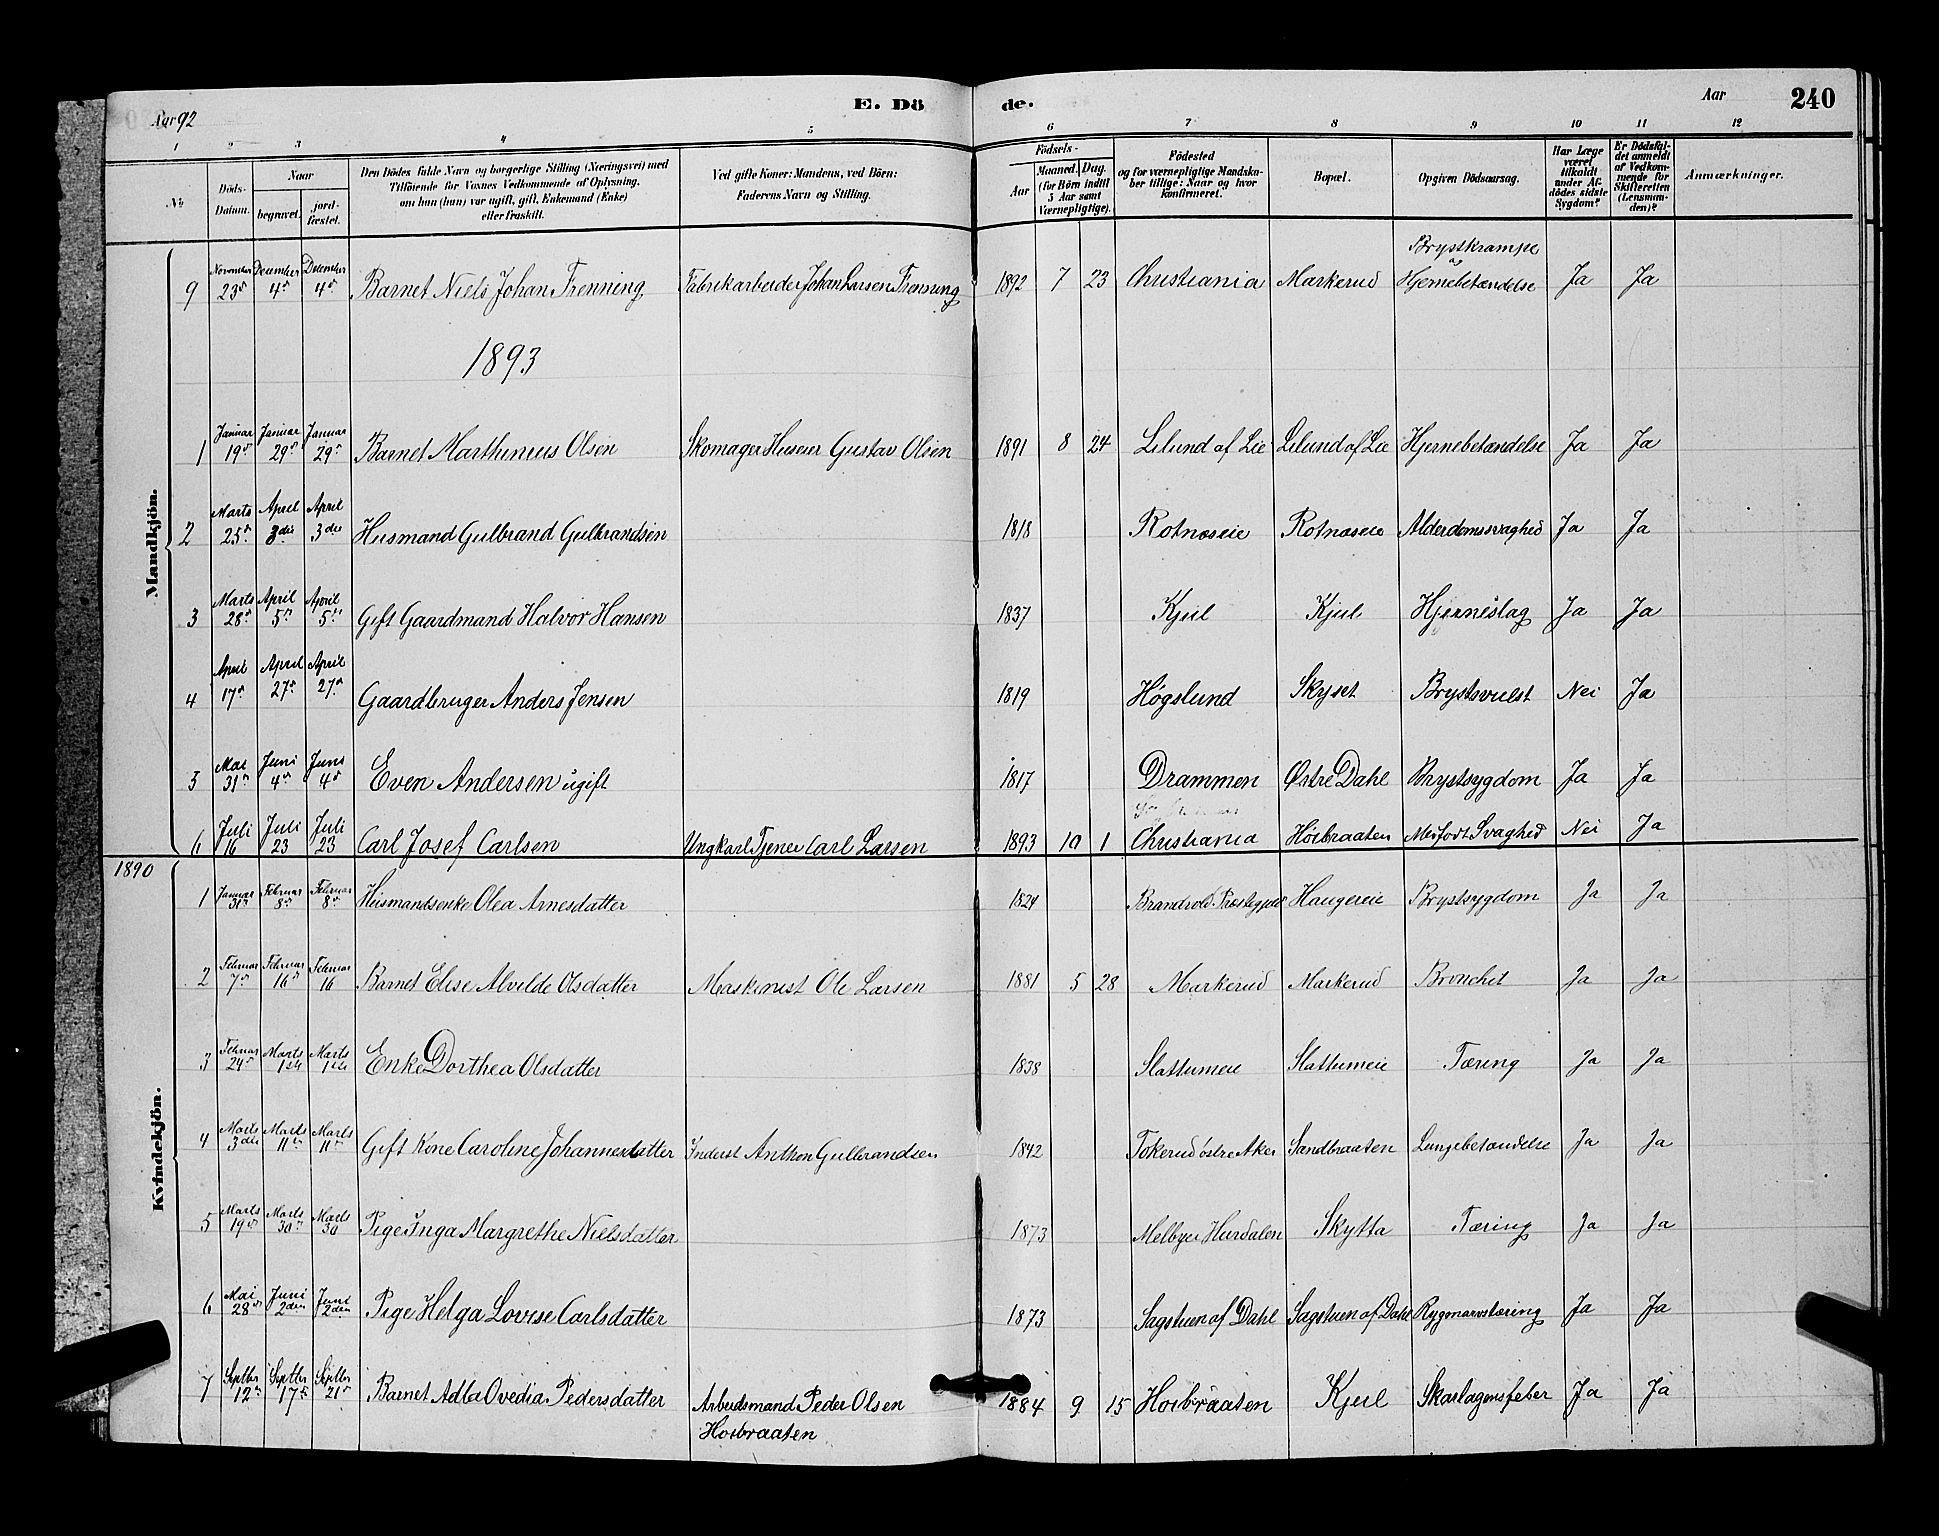 Aar 92 E. Dö de. Aar 240
1 2 3 4 5 6 7 8 9 10 11 12
No
Döds-Datum.
Naar
begravet.
jordfæstet.
Den Dödes fulde Navn og borgerlige Stilling (Næringsvei) med
Tilföiende for Voxnes Vedkommende af Oplysning,
om han (hun) var ugift, gift, Enkemand (Enke)
eller fraskilt.
Ved gifte Koner: Mandens, ved Börn:
Faderens Navn og Stilling.
Födsels-
Aar
Maaned. Dag.
(for Börn indtil
5 Aar samt
Værnepligtige).
Födested
og for værnepligtige Mandska-
ber tillige: Naar og hvor
konfirmeret.
Bopæl.
Opgiven Dödsaarsag.
Har Læge
været
tilkaldt
under Af-
dödes sidste
Sygdom?
Er Dödsfal-
det anmeldt
af Vedkom-
mende for
Skifteretten
(Lensman-
den)?
Anmærkninger.
Mandkjön.
9 November 23de December 4de December 4de Barnet Niels Johan Trenning Fabrikarbeider Johan Larsen Trenning 1892 7 23 Christiania Markerud Brystkrampe og Hjernebetændelse Ja Ja
1893
1 Januar 19de Januar 29de Januar 29de Barnet Marthinius Olsen Skomager Huseier Gustav Olsen 1891 8 24 Lilund af Lie Lilund af Lie Hjernebetændelse Ja Ja
2 Marts 25de April 3die April 3die Husmand Gulbrand Gulbrandsen 1818 Rotnæseie Rotnæseie Alderdomssvaghed Ja Ja
3 Marts 28de April 5te April 5te Gift Gaardmand Halvor Hansen 1837 Kjul Kjul Hjerneslag Ja Ja
4 April 17de April 27de April 27de Gaardbruger Anders Jensen 1819 Høgslund Skyset Brystsvulst Nei Ja
5 Mai 31te Juni 4de Juni 4de Even Andersen ugift 1817 Drammen Østre Dahl Brystsygdom Ja Ja
6 Juli 16 Juli 23 Juli 23 Carl Josef Carlsen Ungkarl Tjener Carl Larsen 1893 10 1 Christiania Høibraaten Medfødt Svaghed Nei Ja
1890
Kvindekjön.
1 Januar 31te Februar 8de Februar 8de Husmandsenke Olea Arnesdatter 1824 Præstegjeld Haugereie Brystsygdom Ja Ja
2 Februar 7de Februar 16de Februar 16 Barnet Elise Alvilde Olsdatter Maskinist Ole Larsen 1881 5 28 Markerud Markerud Bronchit Ja Ja
3 Februar 24de Marts 1ste Marts 1ste Enke Dorthea Olsdatter 1838 Slattumeie Slattumeie Tæring Ja Ja
4 Marts 3die Marts 11te Marts 11te Gift Kone Caroline Johannesdatter Inderst Anthon Gulbrandsen 1842 Tokerud østre Aker Sandbraaten Lungebetændelse Ja Ja
5 Marts 19de Marts 30te Marts 30 Pige Inga Margrethe Nielsdatter 1873 Melbyei Hurdalen Skytta Tæring Ja Ja
6 Mai 28de Juni 2den Juni 2den Pige Helga Lovise Carlsdatter 1873 Sagstuen af Dahl Sagstuen af Dahl Rygmarvstæring Ja Ja
7 Septbr 12te Septbr 17de Septbr 21de Barnet Adla Ovedia Pedersdatter Arbeidsmand Peder Olsen 1884 9 15 Høibraaten Kjul Skarlagensfeber Ja Ja
Høibraaten